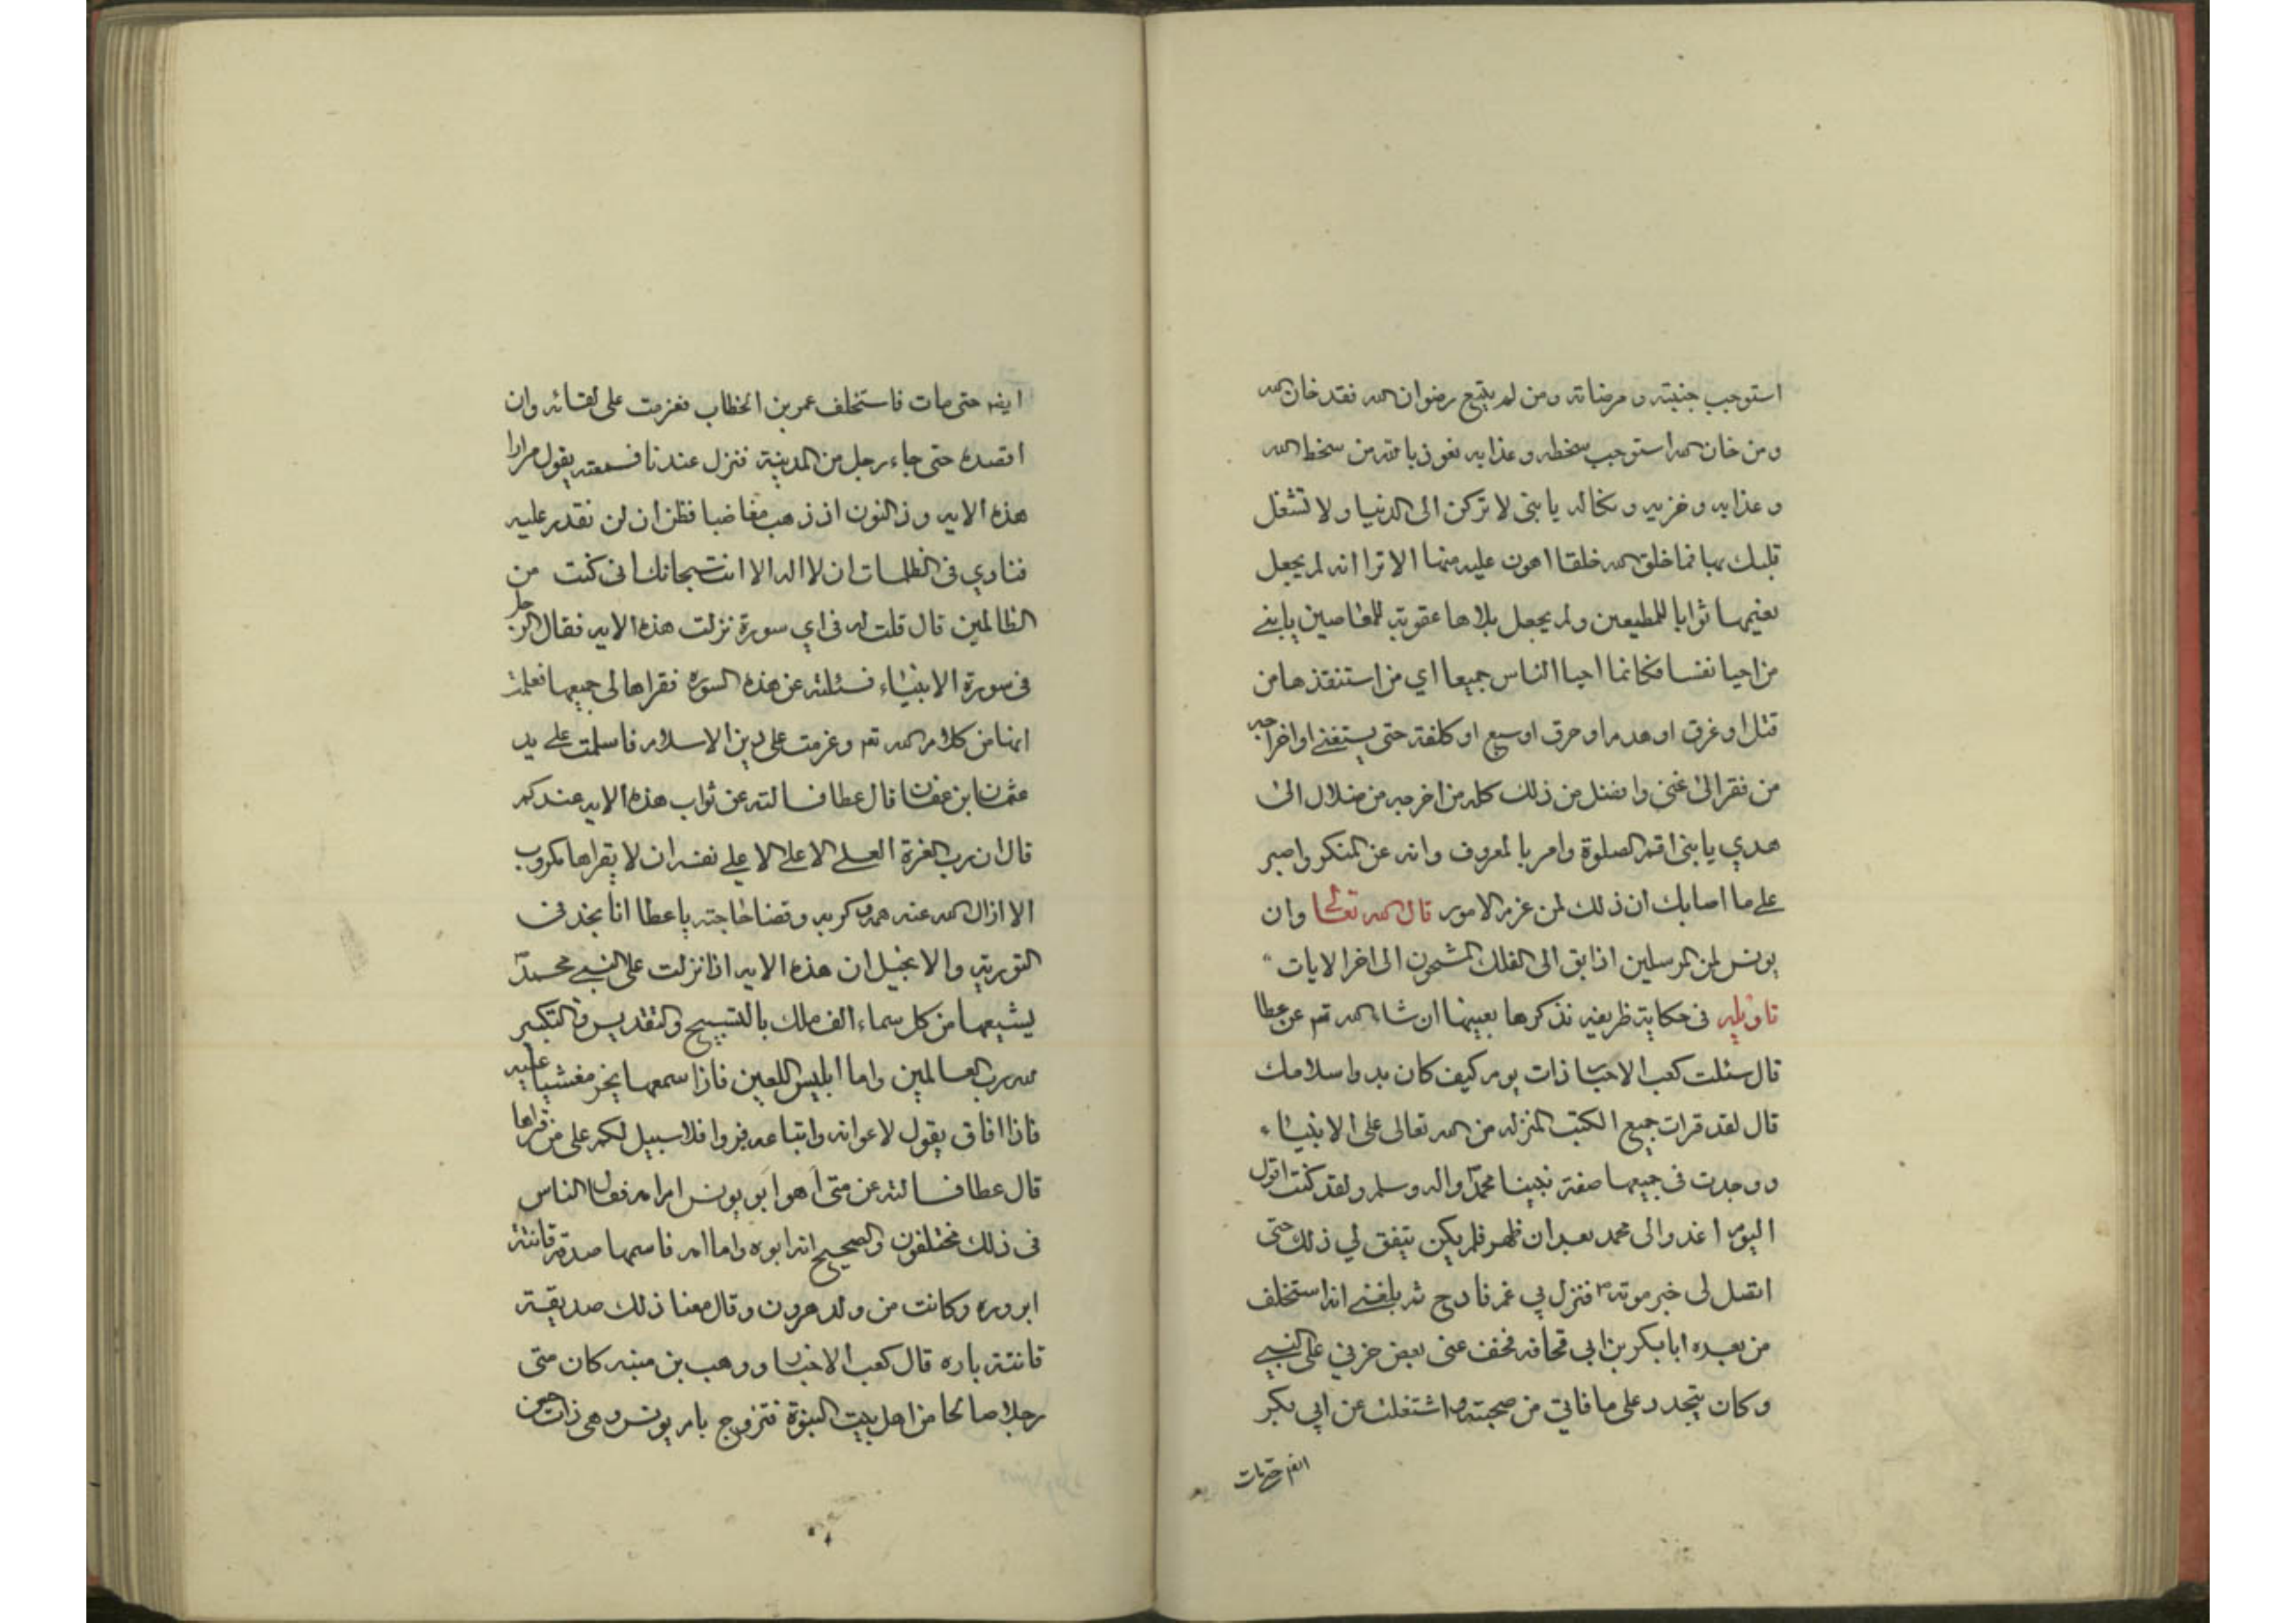 استوجب جنبته و مرضاته ومن لم يتبع رضوان الله فقد خان الله
ومن خان الله استوجب سخطه و عذابه نعوذ بالله من سخط الله
و عذابه و خزيه و نكاله يا بنى لا تركن الى الدنيا ولا تشغل
قلبك بها فما خلق الله خلقا اهون عليه منها الا ترا انه لم يجعل
نعيمها ثوابا للمطيعين ولم يجعل بلاها عقوبة للعاصين يابنے
من احيا نفسا فكانما احيا الناس جميعا اي من استنقذها من
قتل او غرق او هدم او حرق او سبع او كلفة حتى يستغنے او اخراجه
من فقر الى غنى وافضل من ذلك كله من اخرجه من ضلال الى
هدي يا بنى اقم الصلوة وامر بالمعروف وانه عن المنكر واصبر
على ما اصابك ان ذلك لمن عزم الامور قال الله تعالى وان
يونس لمن المرسلين اذ ابق الى الفلك المشحون الى اخر الايات
تاويله فى حكاية ظريفه نذكرها بعينها ان شاء الله تع عن عطا
قال سئلت كعب الاحبار ذات يوم كيف كان بدو اسلامك
قال لقد قرات جميع الكتب المنزله من الله تعالى على الانبياء
ووجدت فى جميعها صفة نبينا محمد واله وسلم ولقد كنت اقول
اليوم اغدوا الى محمد بعد ان ظهر فلم يكن يتفق لي ذلك حتى
اتصل لى خبر موته فنزل بي غم فادح ثم بلغنے انه استخلف
من بعده ابا بكر بن ابي قحافه فخفف عنى بعض حزني على النبے
وكان يتجدد على ما فاتي من صحبته و اشتغلت عن ابي بكر
ايضم حتى مات
ايضم حتى مات فاستخلف عمر بن الخطاب فعزمت على لقائه وان
اقصده حتى جاء رجل من المدينة فنزل عندنا فسمعته يقول مرارا
هذه الايه وذ النون اذ ذهب مغاضبا فظن ان لن نقدر عليه
فنادي فى الظلمات ان لا اله الا انت سبحانك انى كنت من
الظالمين قال قلت له فى اي سورة نزلت هذه الايه فقال الرجل
فى سورة الانبياء فسئلته عن هذه السوره فقراها لى جميعها فعلمت
انها من كلام الله تع وعزمت على دين الاسلام فاسلمت على يد
عثمان ابن عفان قال عطا فسالته عن ثواب هذه الايه عندكم
قال ان رب العزة العلے الاعلے الا علے نفسه ان لا يقراها مكروب
الا ازال الله عنه همه وكربه وقضا حاجته ياعطا انا نجد فى
التورية والانجيل ان هذه الايه اذا نزلت على النبے محمد
يشيعها من كل سماء الف ملك بالتسبيح والتقديس والتكبير
لله رب العالمين واما ابليس اللعين فاذا سمعها يخر مغشيا عليه
فاذا افاق يقول لاعوانه واتباعه فروا فلا سبيل لكم على من قراها
قال عطا فسالته عن متى اهو ابو يونس ام امه فقال الناس
فى ذلك مختلفون والصحيح انه ابوه واما امه فاسمها صدقه قانتة
ابروره وكانت من ولد هرون وقال معنا ذلك صديقة
قانتة باره قال كعب الاحبار ووهب بن منبه كان متى
رجلا صالحا من اهل بيت النبوة فتزوج بام يونس وهى ذات حسن